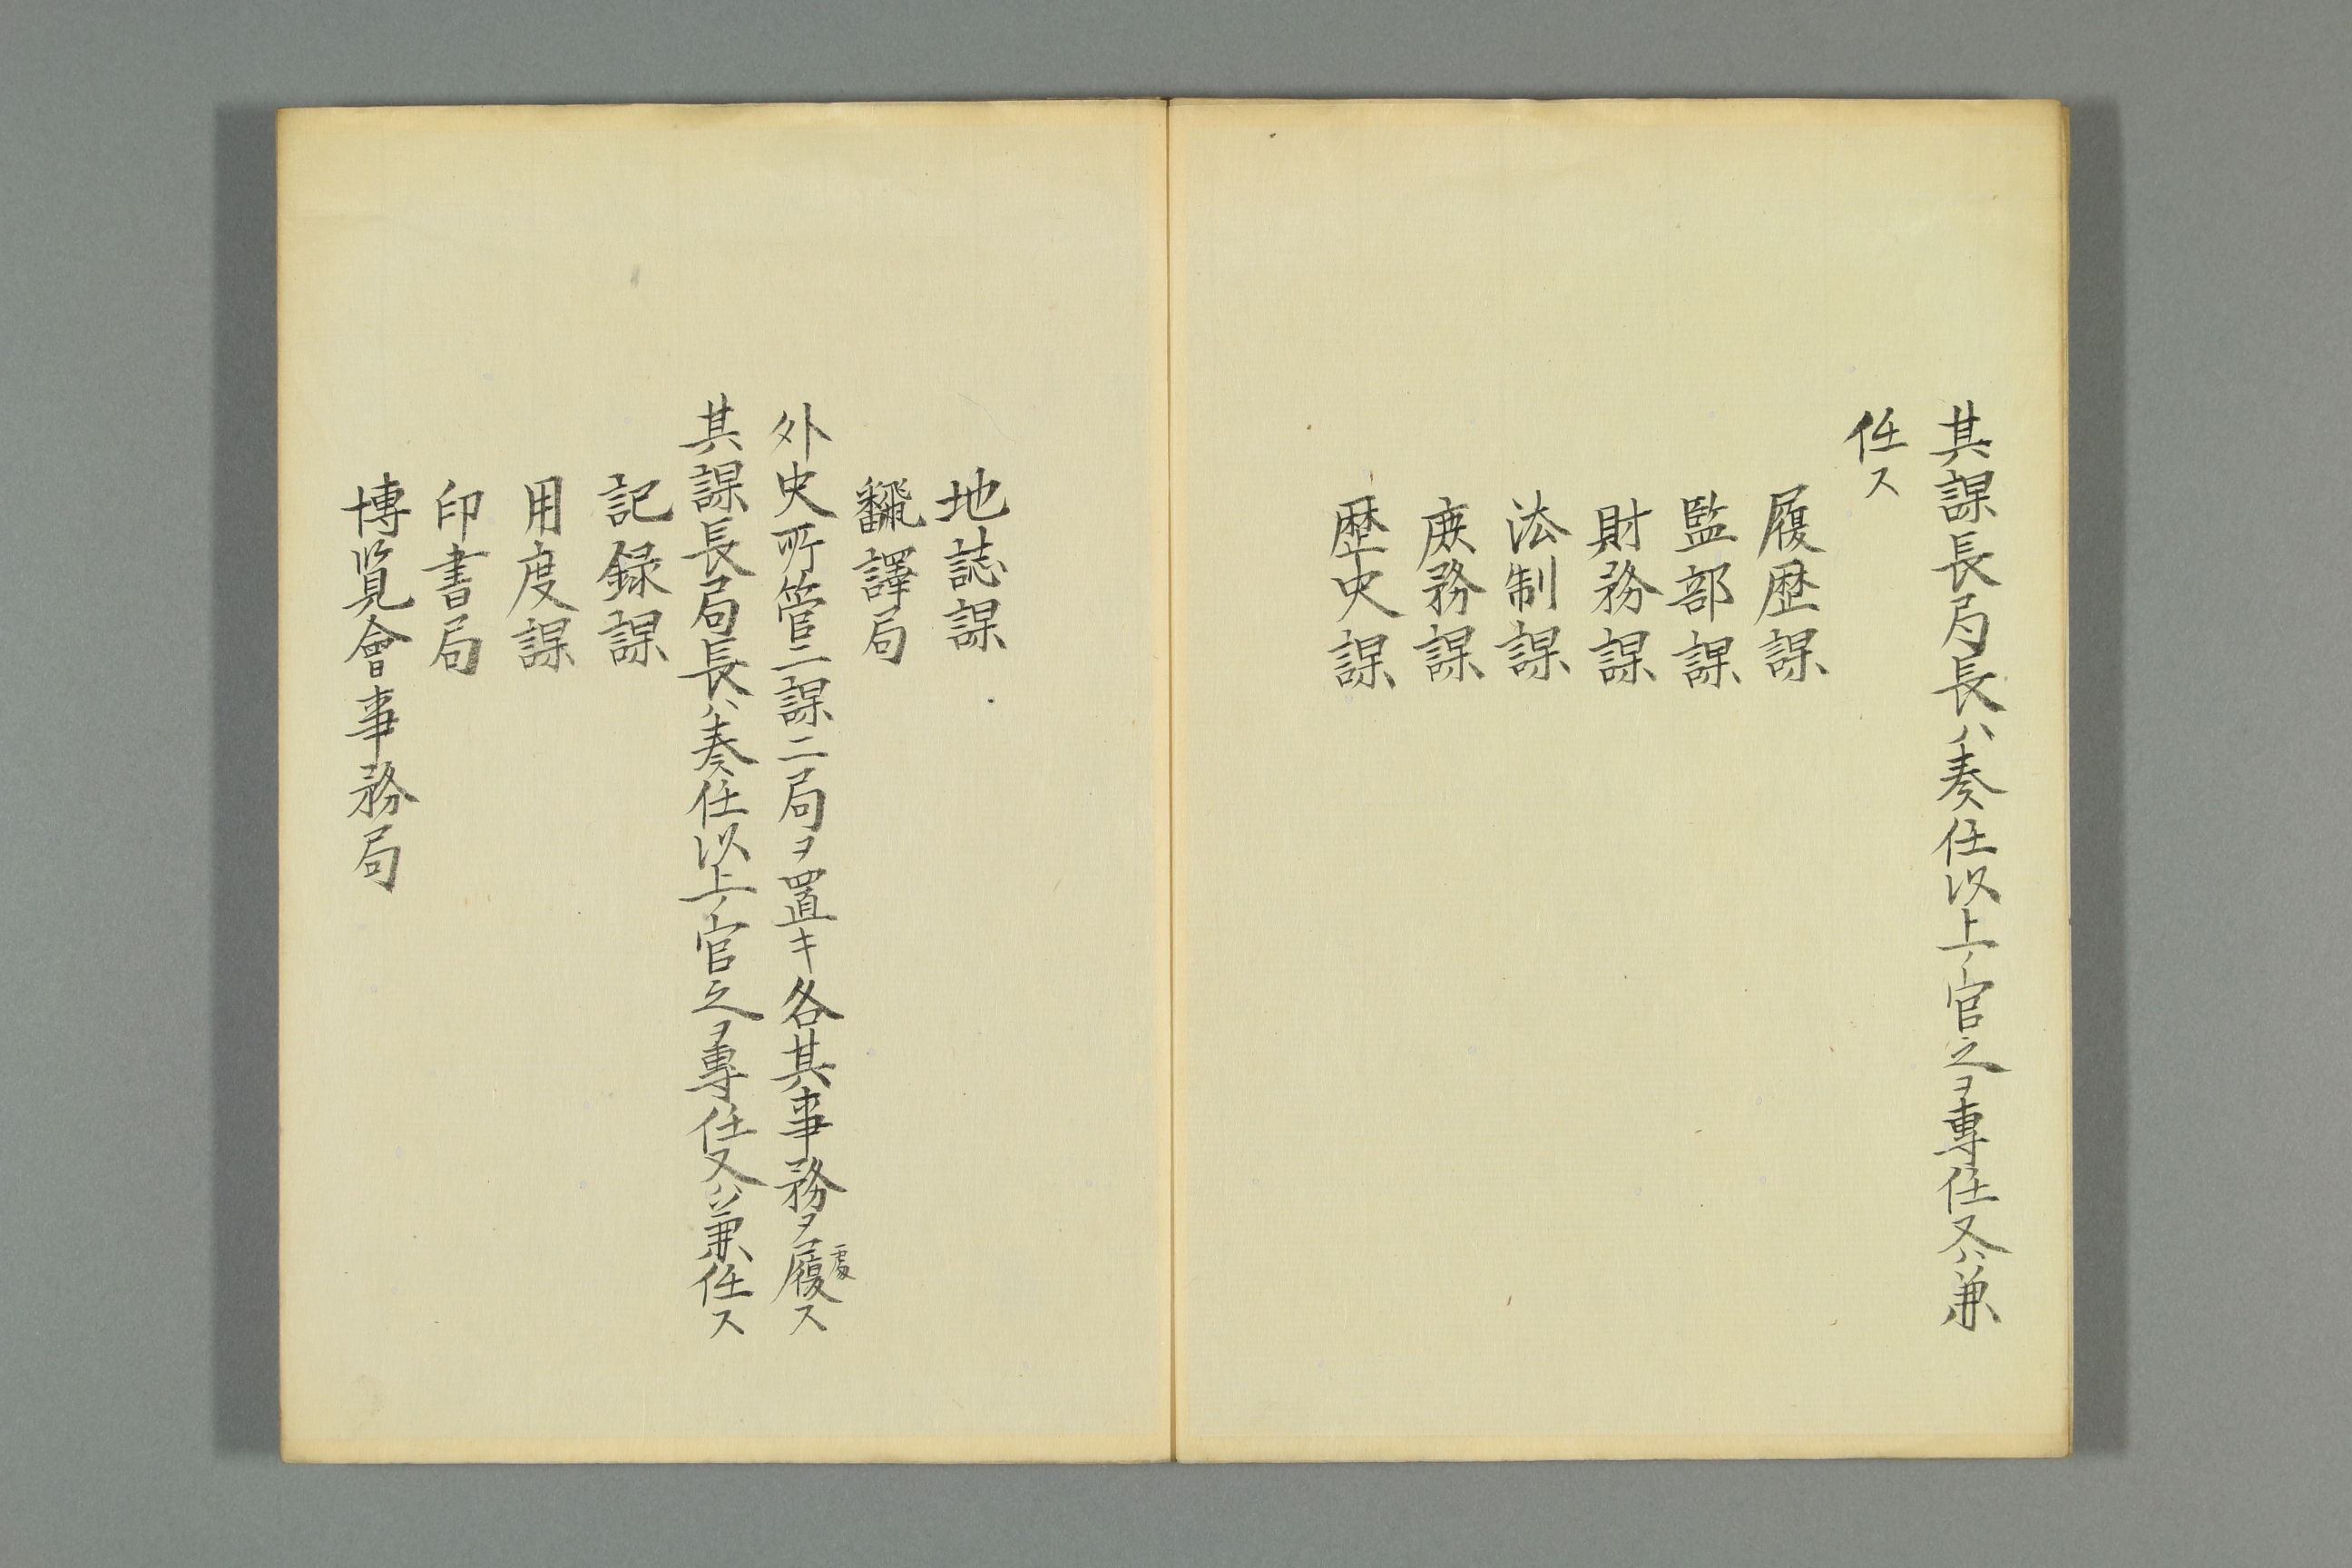 其課長局長ハ奏任以上ノ官之ヲ專任又ハ兼
任ス
履歴課
監部課
財務課
法制課
庶務課
歴史課
地誌課
飜譯局
外史所管二課二局ヲ置キ各其事務ヲ履ス
處
其課長局長ハ奏任以上ノ官之ヲ專任又ハ兼任ス
記録課
用度課
印書局
博覧會事務局